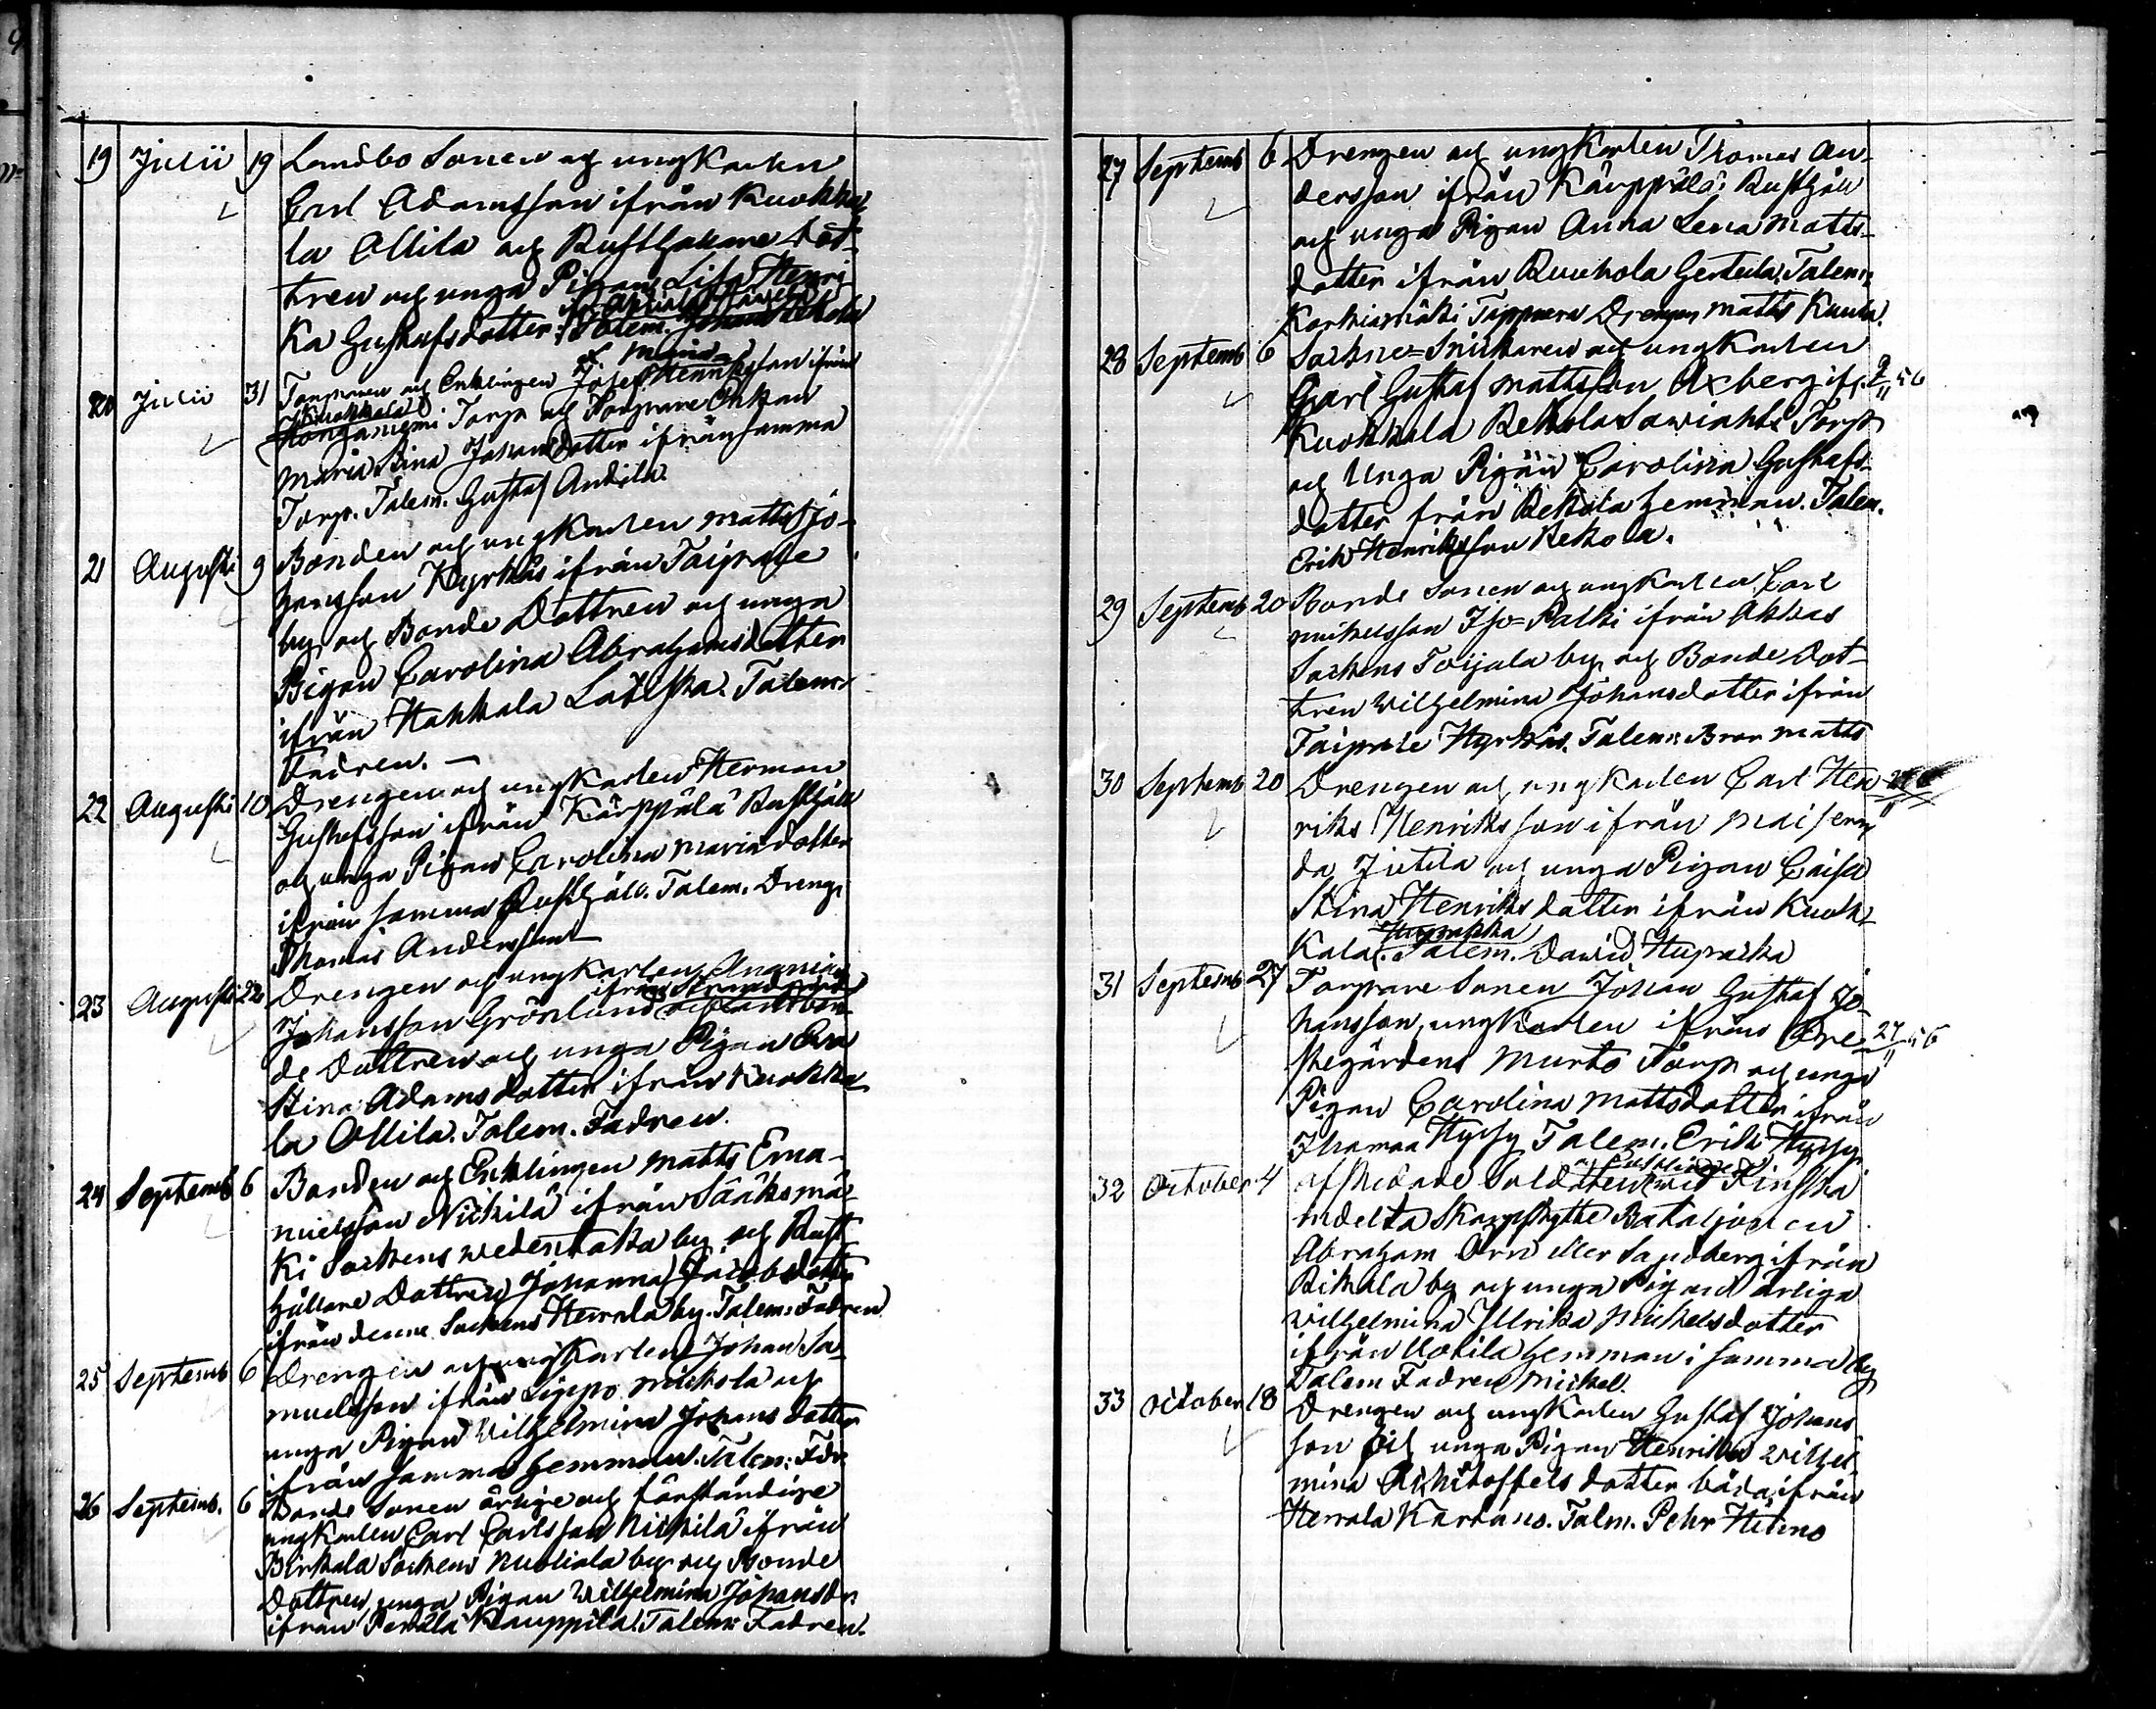 19 Julii 19 Landbo Sonen och ungKarlen
Carl Adamsson ifrån Kuokka
la Ollila och Rusthållare Dot-
tren och unga Pigan Lisa Henri
ka Gustafsdotter. Talem. Johan
20 Julii 31 Torparen och Enklingen Josef Henriksson ifrån
Kuokkala
Torp och Torpare Enkan
Maria Stina Johansdotter ifrån samma
Torp. Talem. Gustaf Andila.
21 Augusti 9 Bonden och ungKarlen Matts Jo-
hansson Hyrkäs ifrån Taipale
by och Bonde Dottren och unga
Pigan Carolina Abrahamsdotter
ifrån Hakkala Talem.
Fadren. —
22 Augusti 10 Drengen och ungKarlen Herman
Gustafsson ifrån Kärppälä Rusthåll
och unga Pigan Carolina Maria dotter
ifrån samma Rusthåll. Talem. Dreng.
Thomas Andersson
23 Augusti 22 Drengen och ungKarlen Anania
ifrån
Johansson Grönlund och Landbon-
de Dottren och unga Pigan Eva
Stina Adamsdotter ifrån Kuokka
la Ollila. Talem. Fadren.
24 Septemb 6 Bonden och Enklingen Matts Ema-
nuelsson Nickilä ifrån Sääksmä
ki Sockens Wedentaka by och Rust
hållare Dottren Johanna Jacobsdotter
ifrån denne Sockens Herrala by. Talem: Fadren
25 Septemb 6 Drengen och ungKarlen Johan Sa-
muelsson ifrån Lippo Mickola och
unga Pigan Wilhelmina Johansdotter
ifrån samma hemman. Talem: Fdr.
26 Septemb. 6 Bonde Sonen ärlige och förståndige
ungKarlen Carl Carlsson Nickilä ifrån
Birkala Sockens Nuoliala by och Bonde
Dottren, unga Pigan Wilhelmina Johansdr.
ifrån Perälä Kauppila. Talem: Fadren.
27 Septemb 6 Drengen och ungKarlen Thomas An-
dersson ifrån Kärppälä Rusthåll
och unga Pigan Anna Lena Matts-
dotter ifrån Ruuhola Gertula. Talem.
Korkiamäki Drengen Matts
28 Septemb 6 Sockne-Snickaren och ungKarlen
Carl Gustaf Mattsson Axberg ifr. 2/11 56
Kuokkala Rekola Torp
och Unga Pigan Carolina Gustafs-
dotter från Rekola hemman. Talem.
Erik Henriksson Rekola.
29 Septemb 20 Bonde Sonen och ungKarlen Carl
Mickelsson Iso-Palki ifrån Akkas
Sockens Toijala by och Bonde Dot-
tren Wilhelmina Johansdotter ifrån
Taipale Hyrkäs. Talem: Bror Matts
30 Septemb 20 Drengen och ungKarlen Carl Hen
riks Henriksson ifrån
da Jutila och unga Pigan Caisa
Stina Henriksdotter ifrån Kuok
Kala. Talem. David
31 Septemb 27 Torpare Sonen Johan Gustaf Jo-
hansson, ungKarlen ifrån 27/11 56
Murto Torp och unga
Pigan Carolina Mattsdotter ifrån
Talem. Erik
32 October 4 afskedade Soldaten och Enklingen wid Finska
indelta Skarpskytte Bataljonen
Abraham Örn eller Sandberg ifrån
by och unga Pigan ärliga
Wilhelmina Ulrika Mickelsdotter
ifrån Uotila hemman i samma by
Talem Fadren Mickel.
33 October 18 Drengen och ungKarlen Gustaf Johans
son och unga Pigan Henrika Wilhel-
mina Christoffersdotter båda ifrån
Herrala Talm. Pehr Heino